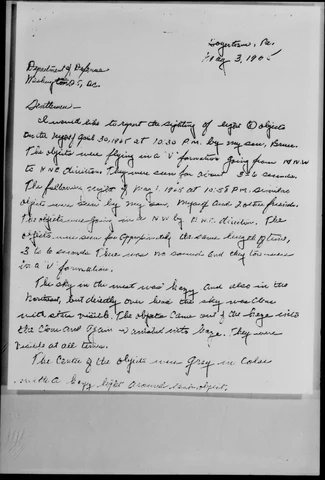 Pa.
May 3, 19
Department of Defense
Washington 25, DC.
Gentlemen -
I would like to report the sighting of eight objects
on the night of 30, at 10:30 P.M. by my son,
The objects were flying in a "V" formation going from
to direction. They were seen for about seconds.
The following night of May 1, at 10:58 P.M. similar
objects were seen by my son, myself and 2 other friends.
The objects going in a N.W. by direction. The
objects were seen for approximately the same length of time,
3 to 6 seconds. There was no sound and they too were
in a "V" formation.
The sky in the west was hazy and also in the
but directly over head the sky was clear
with stars visible. The objects came out of the haze into
the clear and again into haze. They were
visible at all times.
The center of the objects were grey in color
with a hazy light around each object.